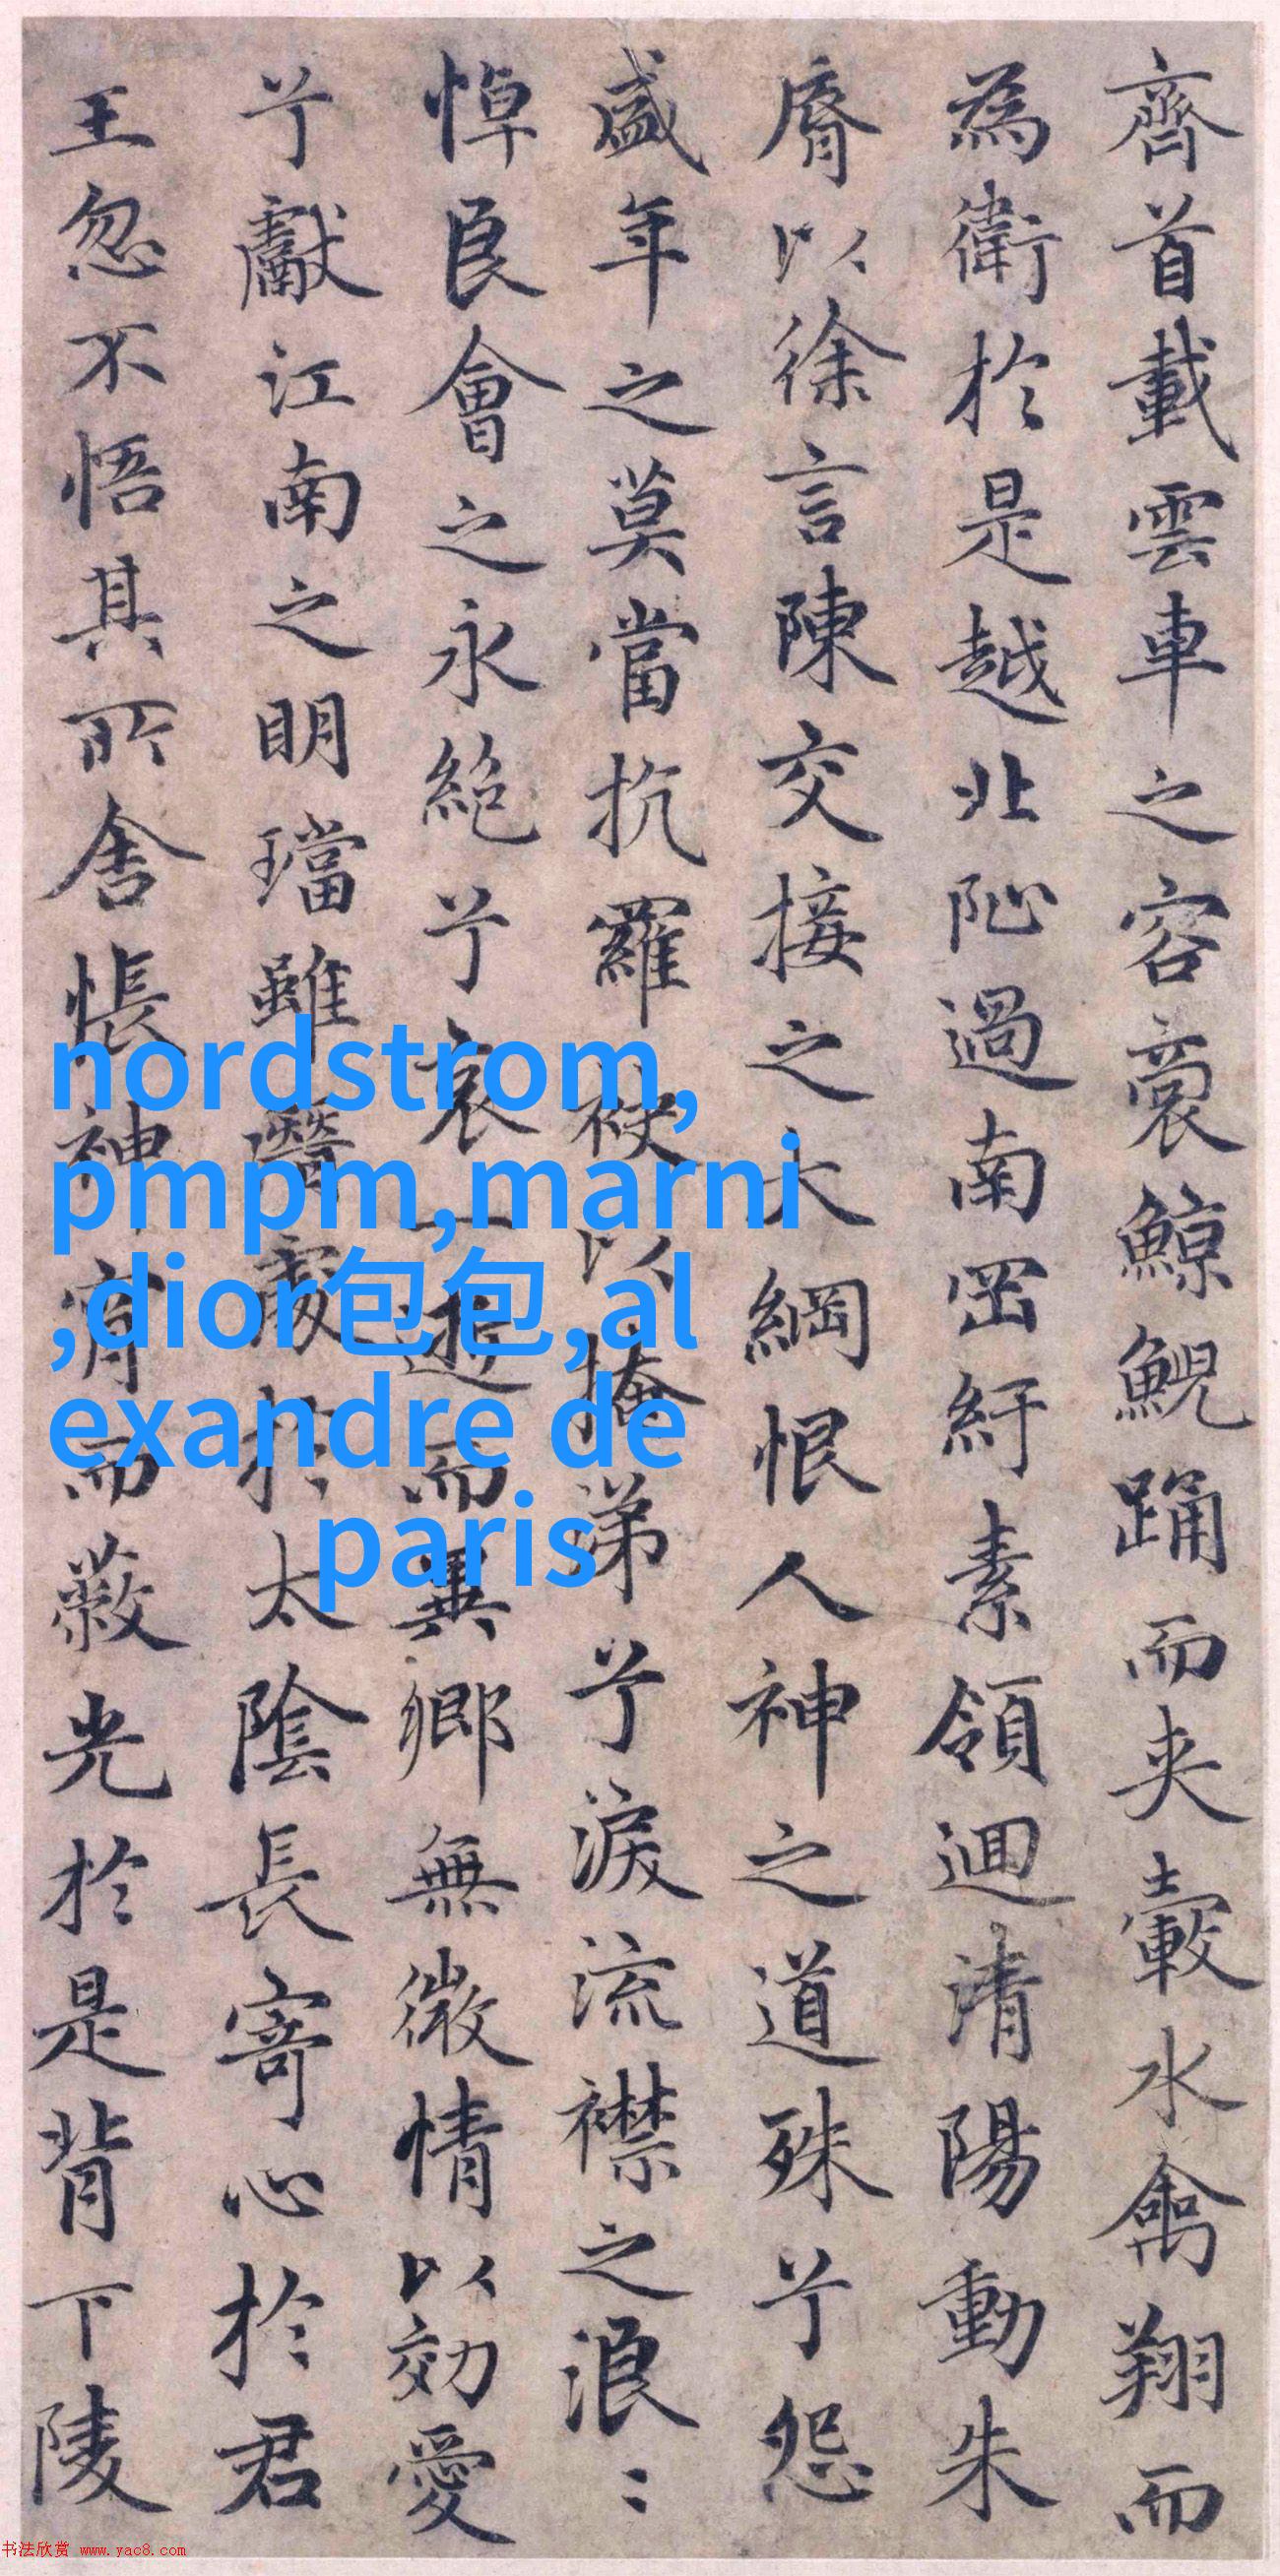 齊首載雲車之容裔鯨鯢踊而夾轂水禽翔而
為衛於是越北沚過南岡紆素領迴清陽動朱
脣以徐言陳交接之大綱恨人神之道殊兮怨
盛年之莫當抗羅袂以掩涕兮淚流襟之浪〻
悼良會之永絕兮哀一逝而異鄉無微情以効愛
兮獻江南之明璫雖潛處於太陰長寄心於君
王忽不悟其所舍悵神宵而蔽光於是背下陵
nordstrom,
pmpm,marni
,dior包包,al
exandre de
paris
书法欣赏 www.yac8.com